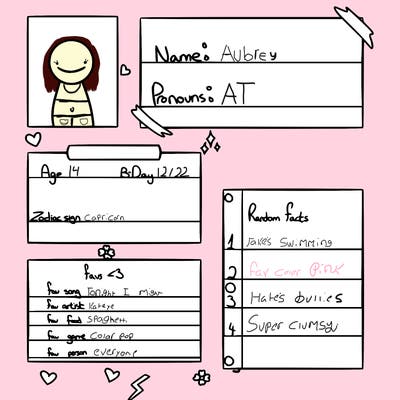 Name: Aubrey
Pronouns: AT
Age 14 B-Day 12/22
Zodiac sign Capricorn
favs <3
fav song Tonight I might
fav artist Katseye
fav food spaghetti
fav game Color pop
fav person everyone
Random facts
1 Takes Swimming
2 Fav color Pink
3 Hates bullies
4 Super clumsy